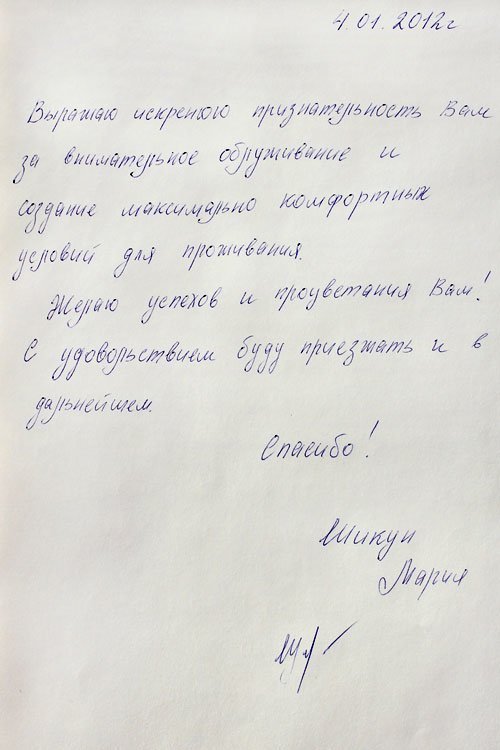 4.01.2012г
Выражаю искренюю признательность Вам
за внимательное обруживание и
создание максимально комфортных
условий для проживания.
Желаю успехов и процветания Вам!
С удовольствием буду приезжать и в
дальнейшем.
Спасибо!
Шикун
Мария